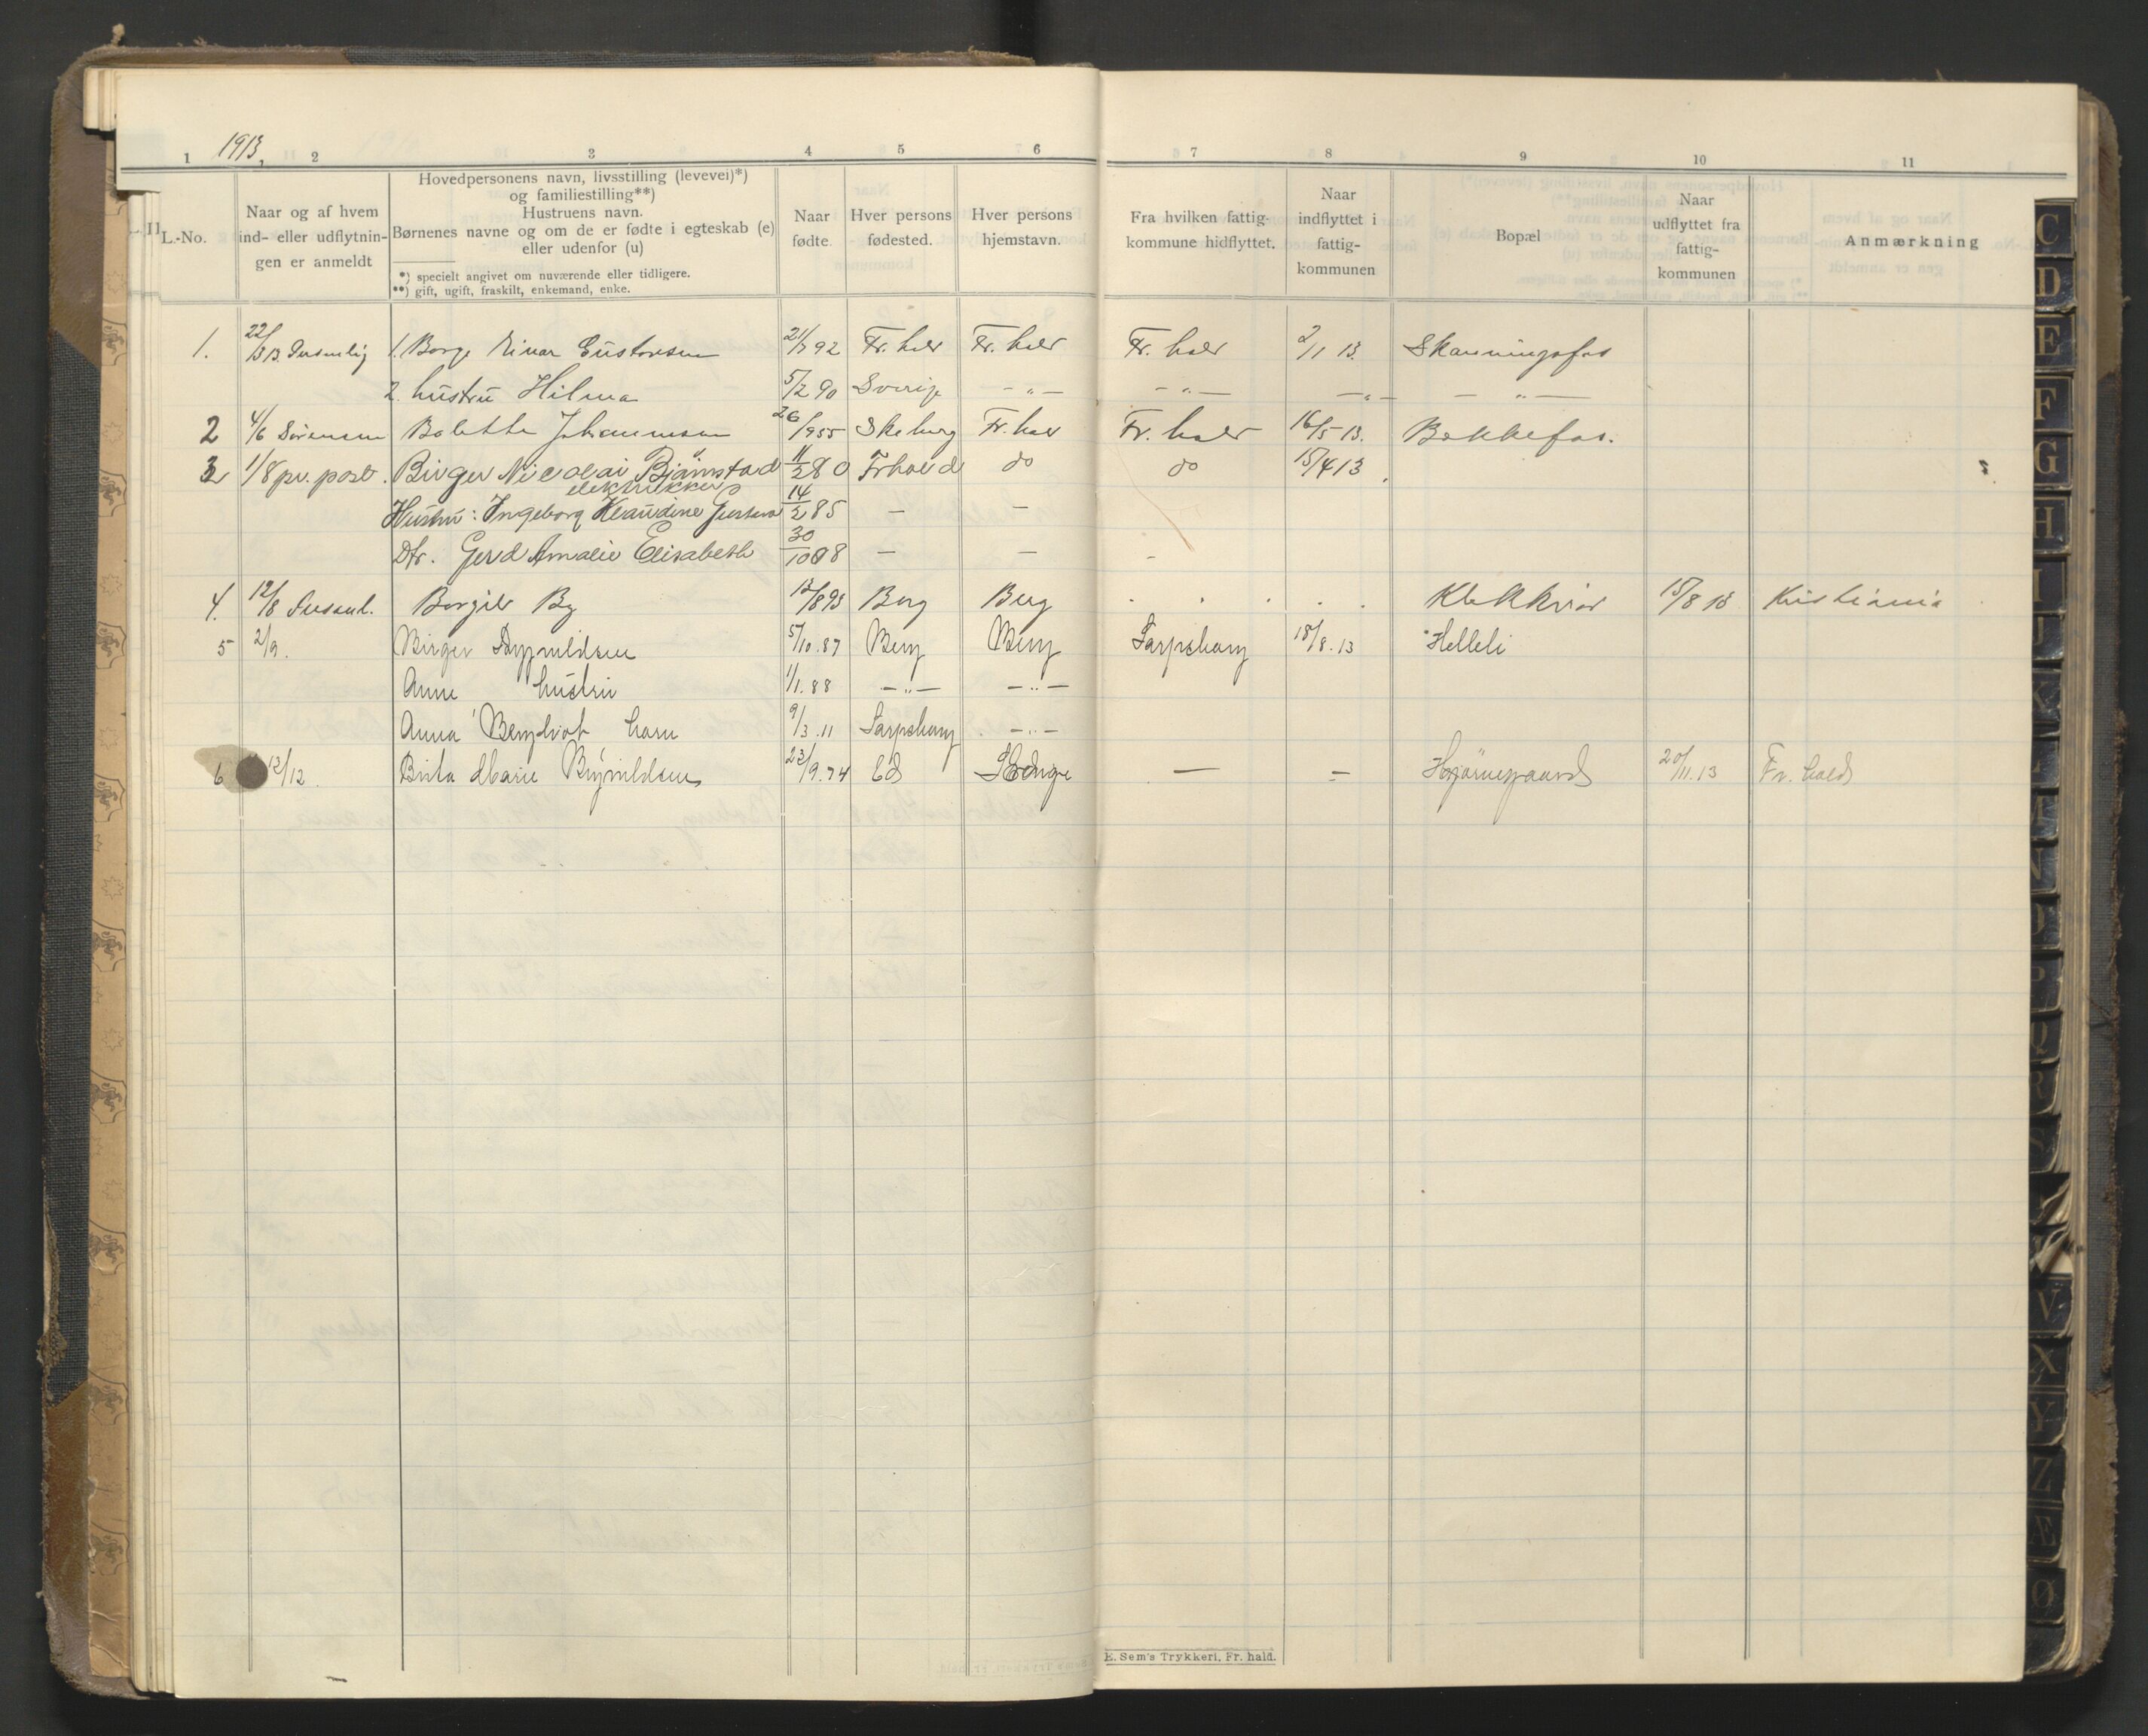 1913,
1 2 3 4 5 6 7 8 9 10 11
L.-No.
Naar og af hvem
ind- eller udflytnin-
gen er anmeldt
Hovedpersonens navn, livsstilling (levevei)*)
og familiestilling**)
Hustruens navn.
Børnenes navne og om de er fødte i egteskab (e)
eller udenfor (u)
*) specielt angivet om nuværende eller tidligere.
**) gift, ugift, fraskilt, enkemand, enke.
Naar
fødte.
Hver persons
fødested.
Hver persons
hjemstavn.
Fra hvilken fattig-
kommune hidflyttet.
Naar
indflyttet i
fattig-
kommunen
Bopæl
Naar
udflyttet fra
fattig-
kommunen
Anmærkning
1. 22/3 13. Personlig 1. Borge Einar Gustavsen 21/7 92 Fr. hald Fr. hald Fr. hald 2/11 13. Skanningsfos
2. hustru Hilma 5/2 90 Sverige - " - - " - - " - - " -
2 4/6 Sörensen Bolette Johannesen 26/9 55 Skeberg Fr. hald Fr. hald 16/5 13. Bakkefos.
3 1/8 pr. post. Birger Nicolai Björnstad 11/2 80 Frhald do do 15/4 13.
elektrikker
Hustru: Ingeborg Klaudine Gustava 14/2 85 — —
Dtr. Gerd Amalie Elisabeth 30/10 08 — — -
4. 12/8 Personl. Borgild By 12/8 93 Berg Berg . . . . . Klekkivod 15/8 13 Kristiania
5 2/9. Birger Brynildsen 5/10. 87 Berg Berg Sarpsborg 18/8. 13 Helleli
Anne hustru 1/1. 88 - " - - " -
Anna Bergliot barn 9/3. 11 Sarpsborg - " -
6 12/12. Brita Marie Brynildsen 23/9. 74 Ed Sverige — = Hjörnegaard 20/11. 13 Fr. hald
E. Sem's Trykkeri, Fr. hald.
C
D
E
F
G
H
I
J
K
L
Æ
N
O
P
Q
R
S
V
X
Y
Z
Æ
Ø